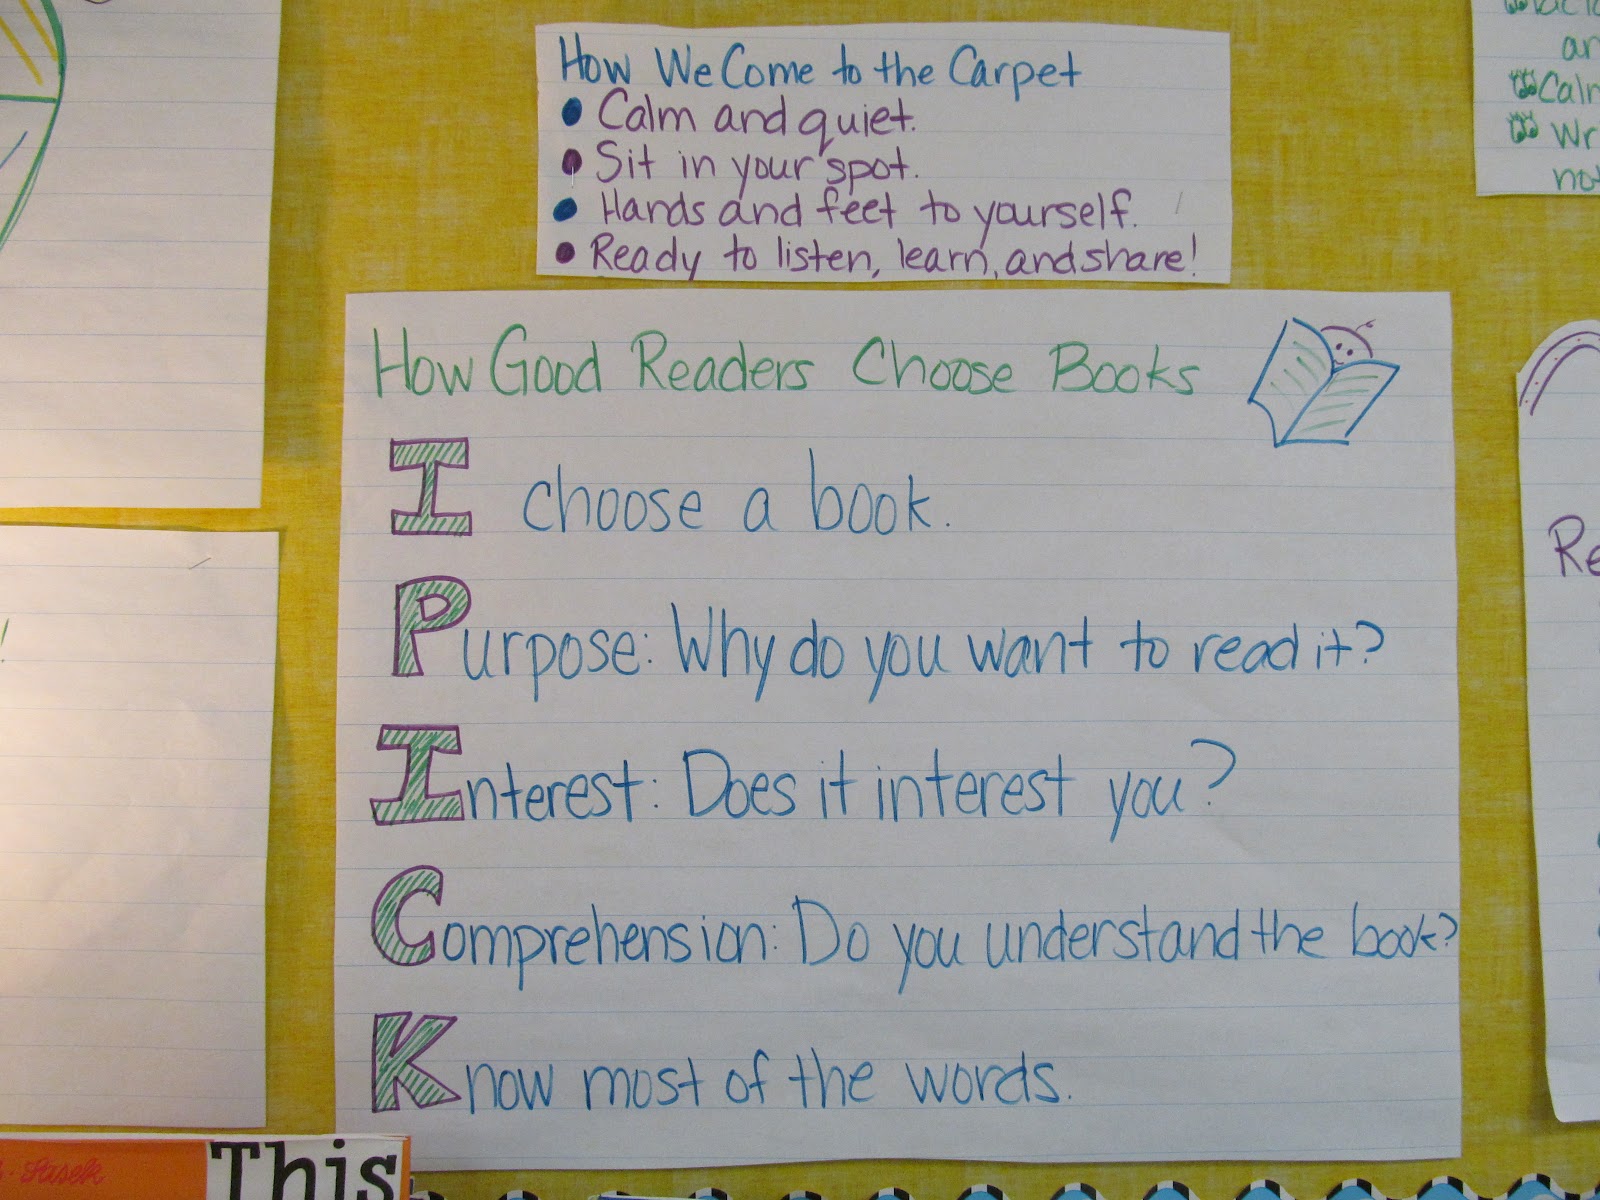 How We Come to the Carpet
• Calm and quiet.
• Sit in your spot.
• Hands and feet to yourself.
• Ready to listen, learn, and share!
How Good Readers Choose Books
I choose a book.
Purpose: Why do you want to read it?
Interest: Does it interest you?
Comprehension: Do you understand the book?
Know most of the words.
Re
This